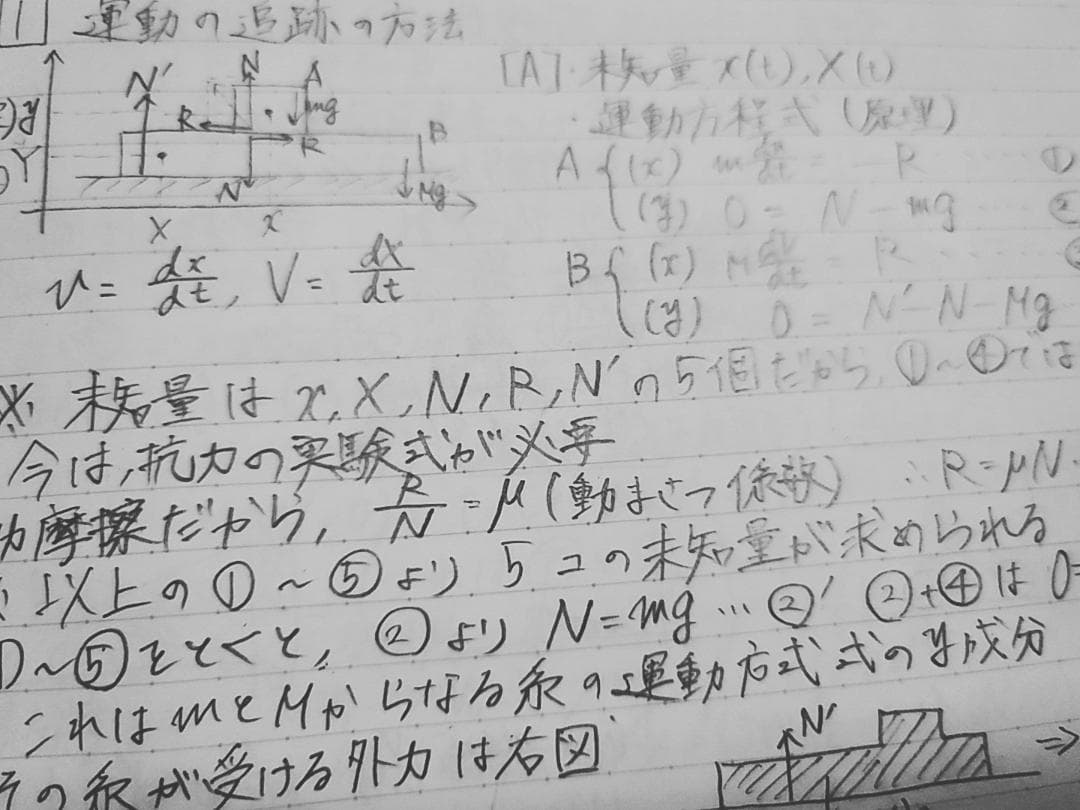 1 運動の追跡の方法
y
Y
N' N A mg
R R B
N Mg
X x
v = dx/dt, V = dX/dt
[A]・未知量 x(t), X(t)
・運動方程式(原理)
A { (x) m dv/dt = -R …… ①
(y) 0 = N - mg …… ②
B { (x) M dV/dt = R ……
(y) 0 = N' - N - Mg
※ 未知量は x, X, N, R, N' の5個だから, ①~④では
今は, 抗力の実験式が必要
摩擦だから, R/N = μ (動まさつ係数) ∴ R = μN
以上の ①~⑤より 5コの未知量が求められる
~⑤をとくと, ②より N = mg …②' ②+④は 0=
これは mとMからなる系の運動方式式のy成分
の系が受ける外力は右図
N' ⇒